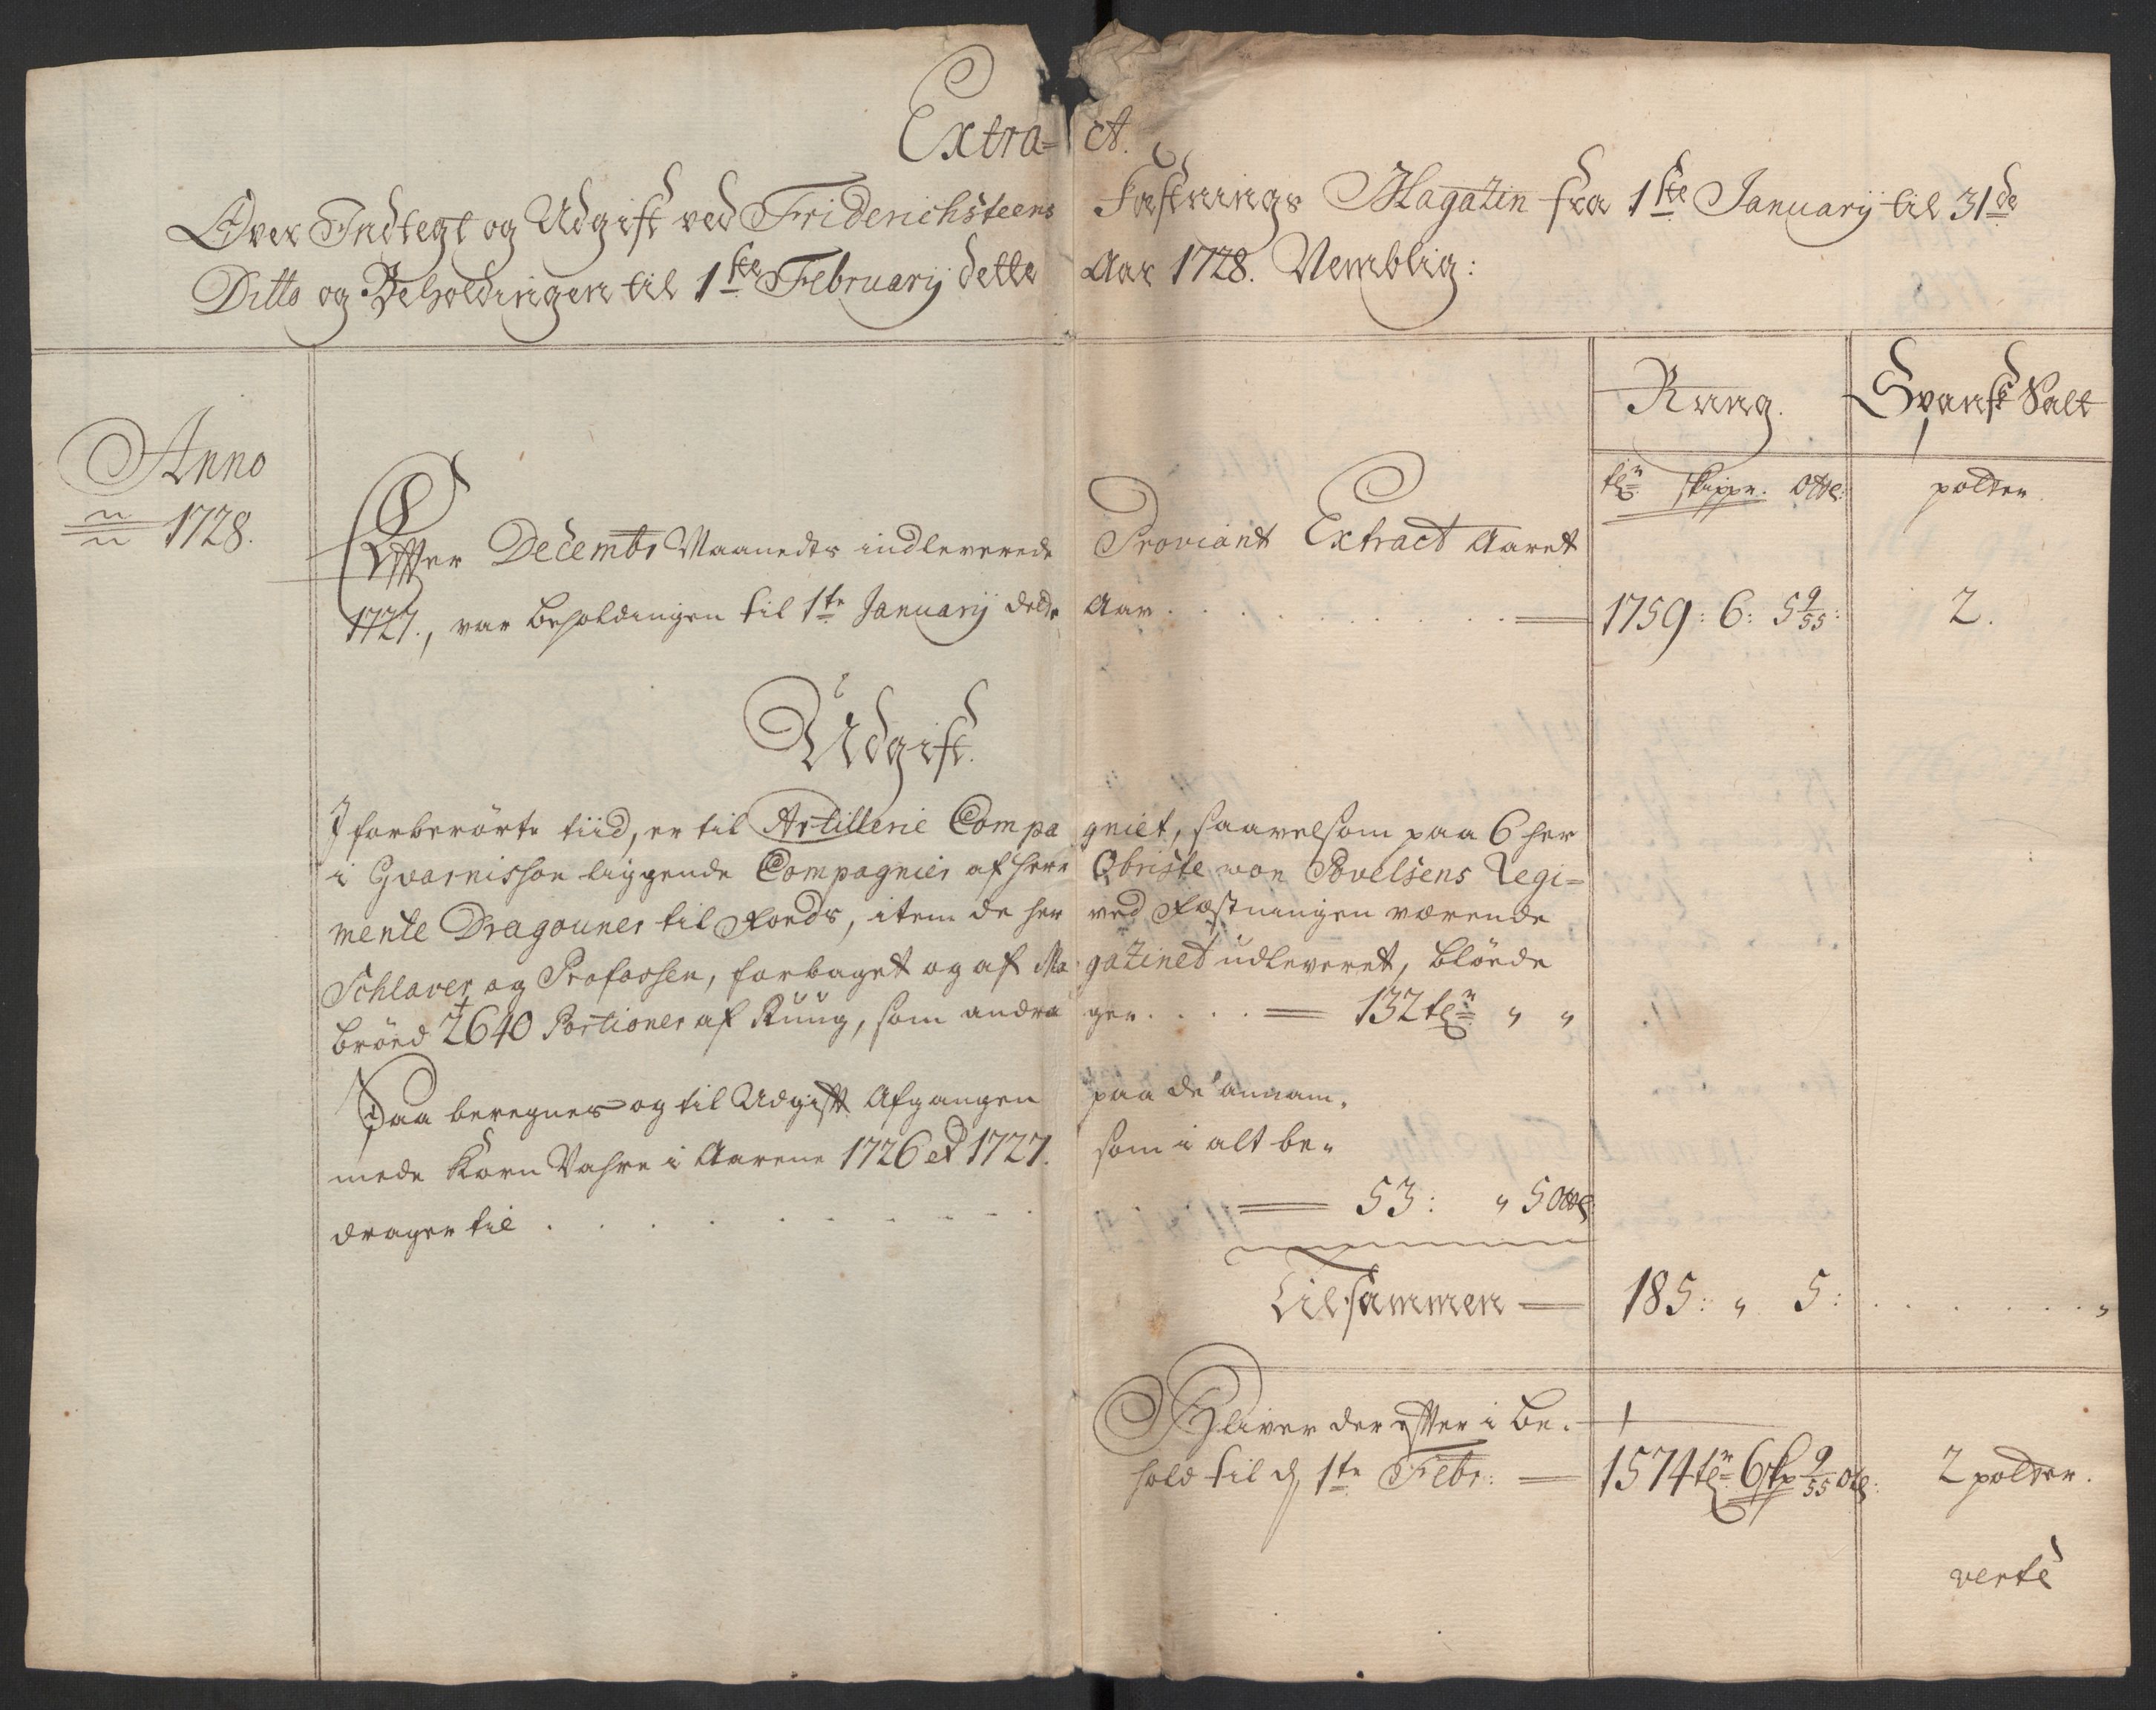 Extra= ct.
Over Indtegt og Udgift ved Friderichsteens Fæstnings Magazin fra 1ste January til 31de
Ditto og Beholdingen til 1ste February dette Aar 1728. Nemblig:
Rung. Spansk Salt
Anno
1728.
tr skippr. Otl: poltter
Effter Decembr Maanedts indleverede Proviant Extract Aaret
1727., var beholdingen til 1te January dette Aar . . . . . . . = 1759: 6: 5 9/55: 2.
Udgift.
I forberörte tiid, er til Artillerie Compa gniet, saavelsom paa 6 her
i Gvarnisson liggende Compagnier af Herr Obriste von Povelsens Regi=
mente Dragouner til Foeds, item de her ved Fæstningen værende
Schlaver og Profossen, forbaget og af Ma gazinet udleveret, blöede
bröed 2640 Portioner af Rüüg, som andra ger . . . . = 132 tr „ „
Saa beregnes og til Udgift Afgangen paa de annam.
mede Korn Vahre i Aarene 1726 et 1727. som i alt be„
drager til . . . . . . . . . . = 53: „ 5 Otl
Tilsammen = 185: „ 5: . . . . . . „
Bliver der effter i be.
hold til d 1te Febr: = 1574 tr 6 skp 9/55 Otl: 2 poltter.
verte